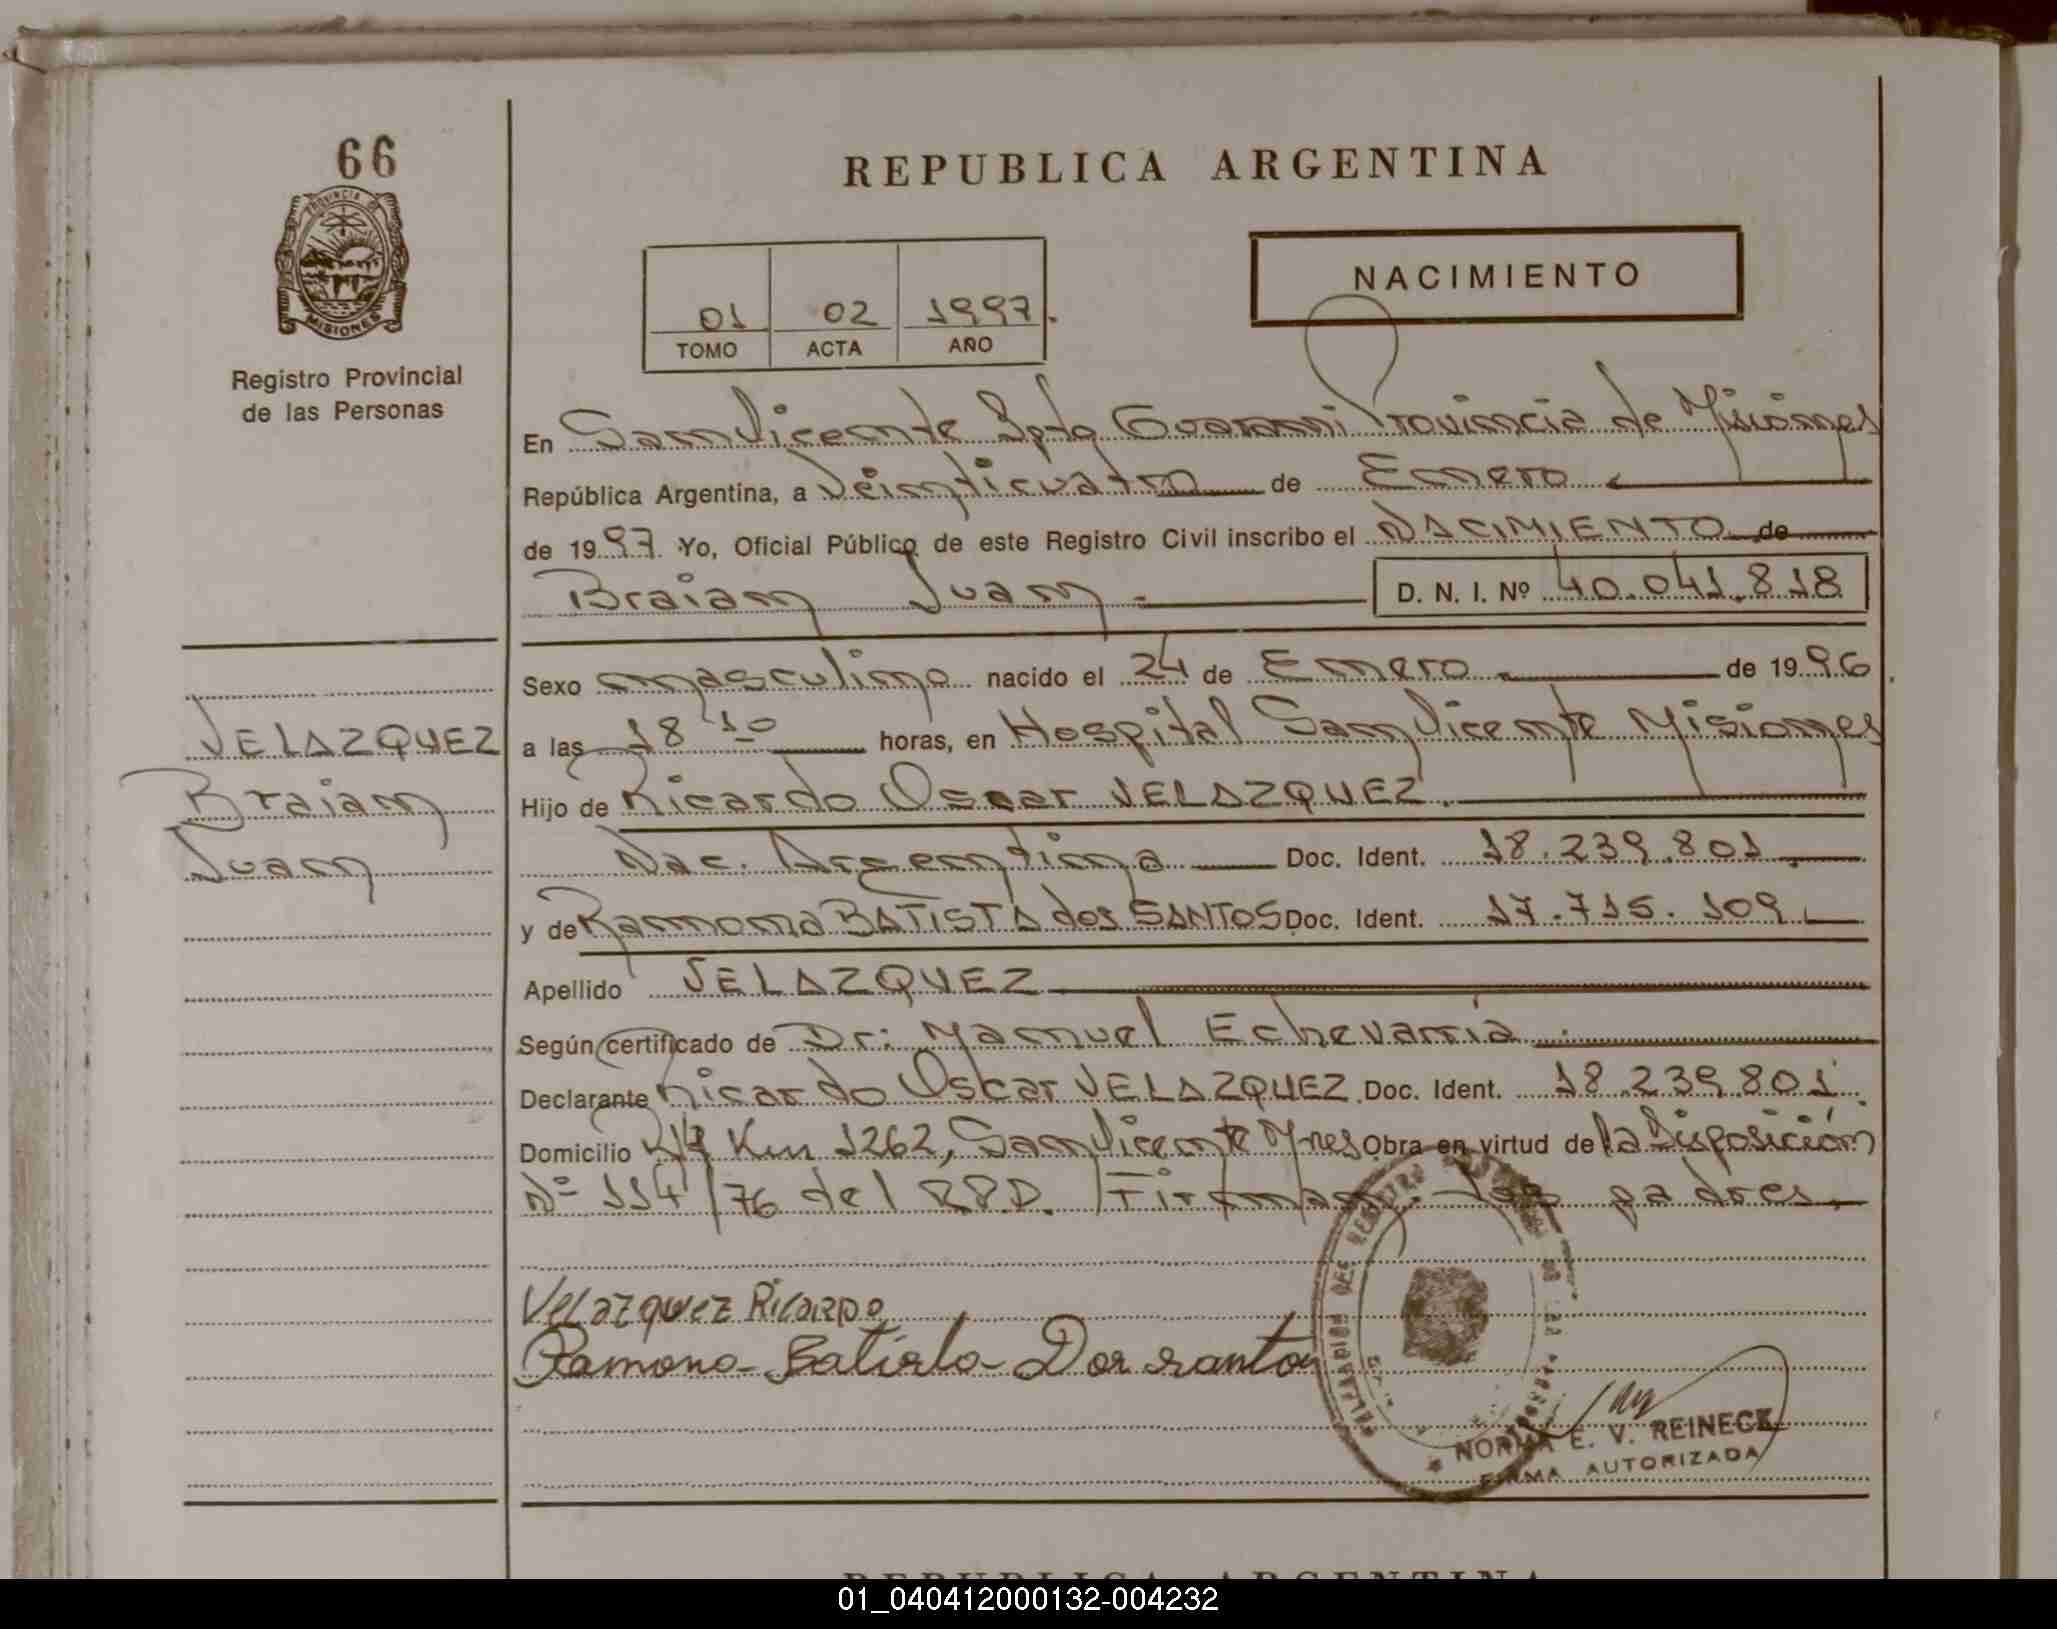 66
REPUBLICA ARGENTINA
PROVINCIA DE
MISIONES
Registro Provincial
de las Personas
NACIMIENTO
01 02 1997.
TOMO ACTA AÑO
En San Vicente Dpto Guarani Provincia de Misiones
República Argentina, a Veinticuatro de Enero
de 1997. Yo, Oficial Público de este Registro Civil inscribo el NACIMIENTO de
Braian Juan D. N. I. Nº 40.041.818
Sexo masculino nacido el 24 de Enero de 1996
a las 18 10 horas, en Hospital San Vicente Misiones
Hijo de Ricardo Oscar VELAZQUEZ.
Nac. Argentina Doc. Ident. 18.239.801.
y de Ramona BATISTA dos SANTOS Doc. Ident. 17.715.109
Apellido VELAZQUEZ
Según certificado de Dr: Manuel Echevarría
Declarante Ricardo Oscar VELAZQUEZ. Doc. Ident. 18.239.801.
Domicilio Km 1262, San Vicente Mnes Obra en virtud de la Disposición
Nº 114/76 del R.P.P. Firman los padres.
VELAZQUEZ
Braian
Juan
Velazquez Ricardo
Ramona Batista Dos santos
NORMA E. V. REINECK
FIRMA AUTORIZADA
REPUBLICA ARGENTINA
01_040412000132-004232